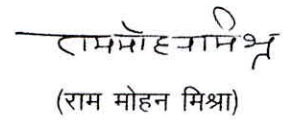 राममोहनमिश्र
(राम मोहन मिश्रा)